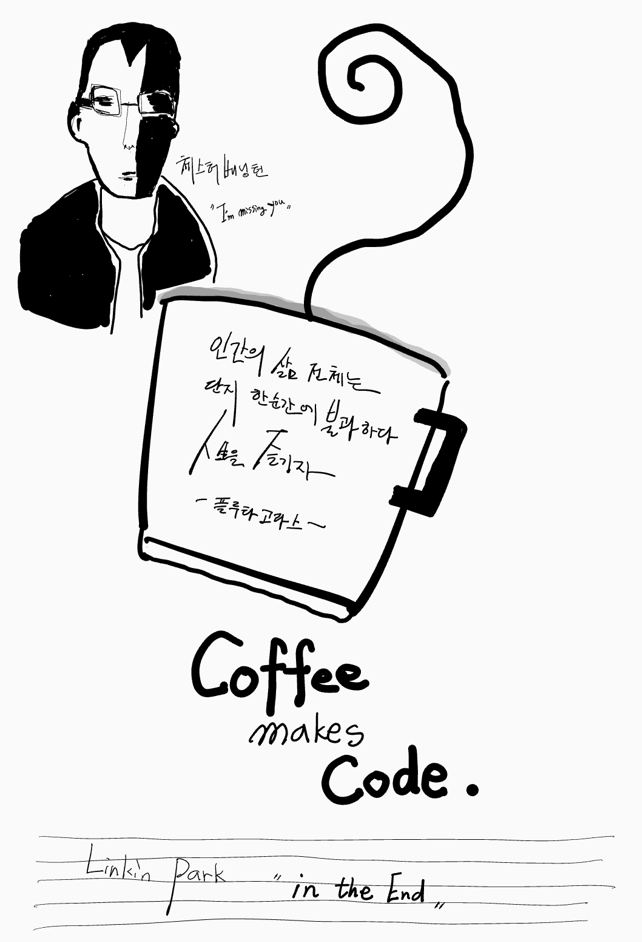 체스터 베닝턴
"I'm missing you"
인간의 삶 전체는
단지 한순간에 불과하다
人生을 즐기자
- 플루타고라스 ~
Coffee
makes
Code.
Linkin Park "in the End"